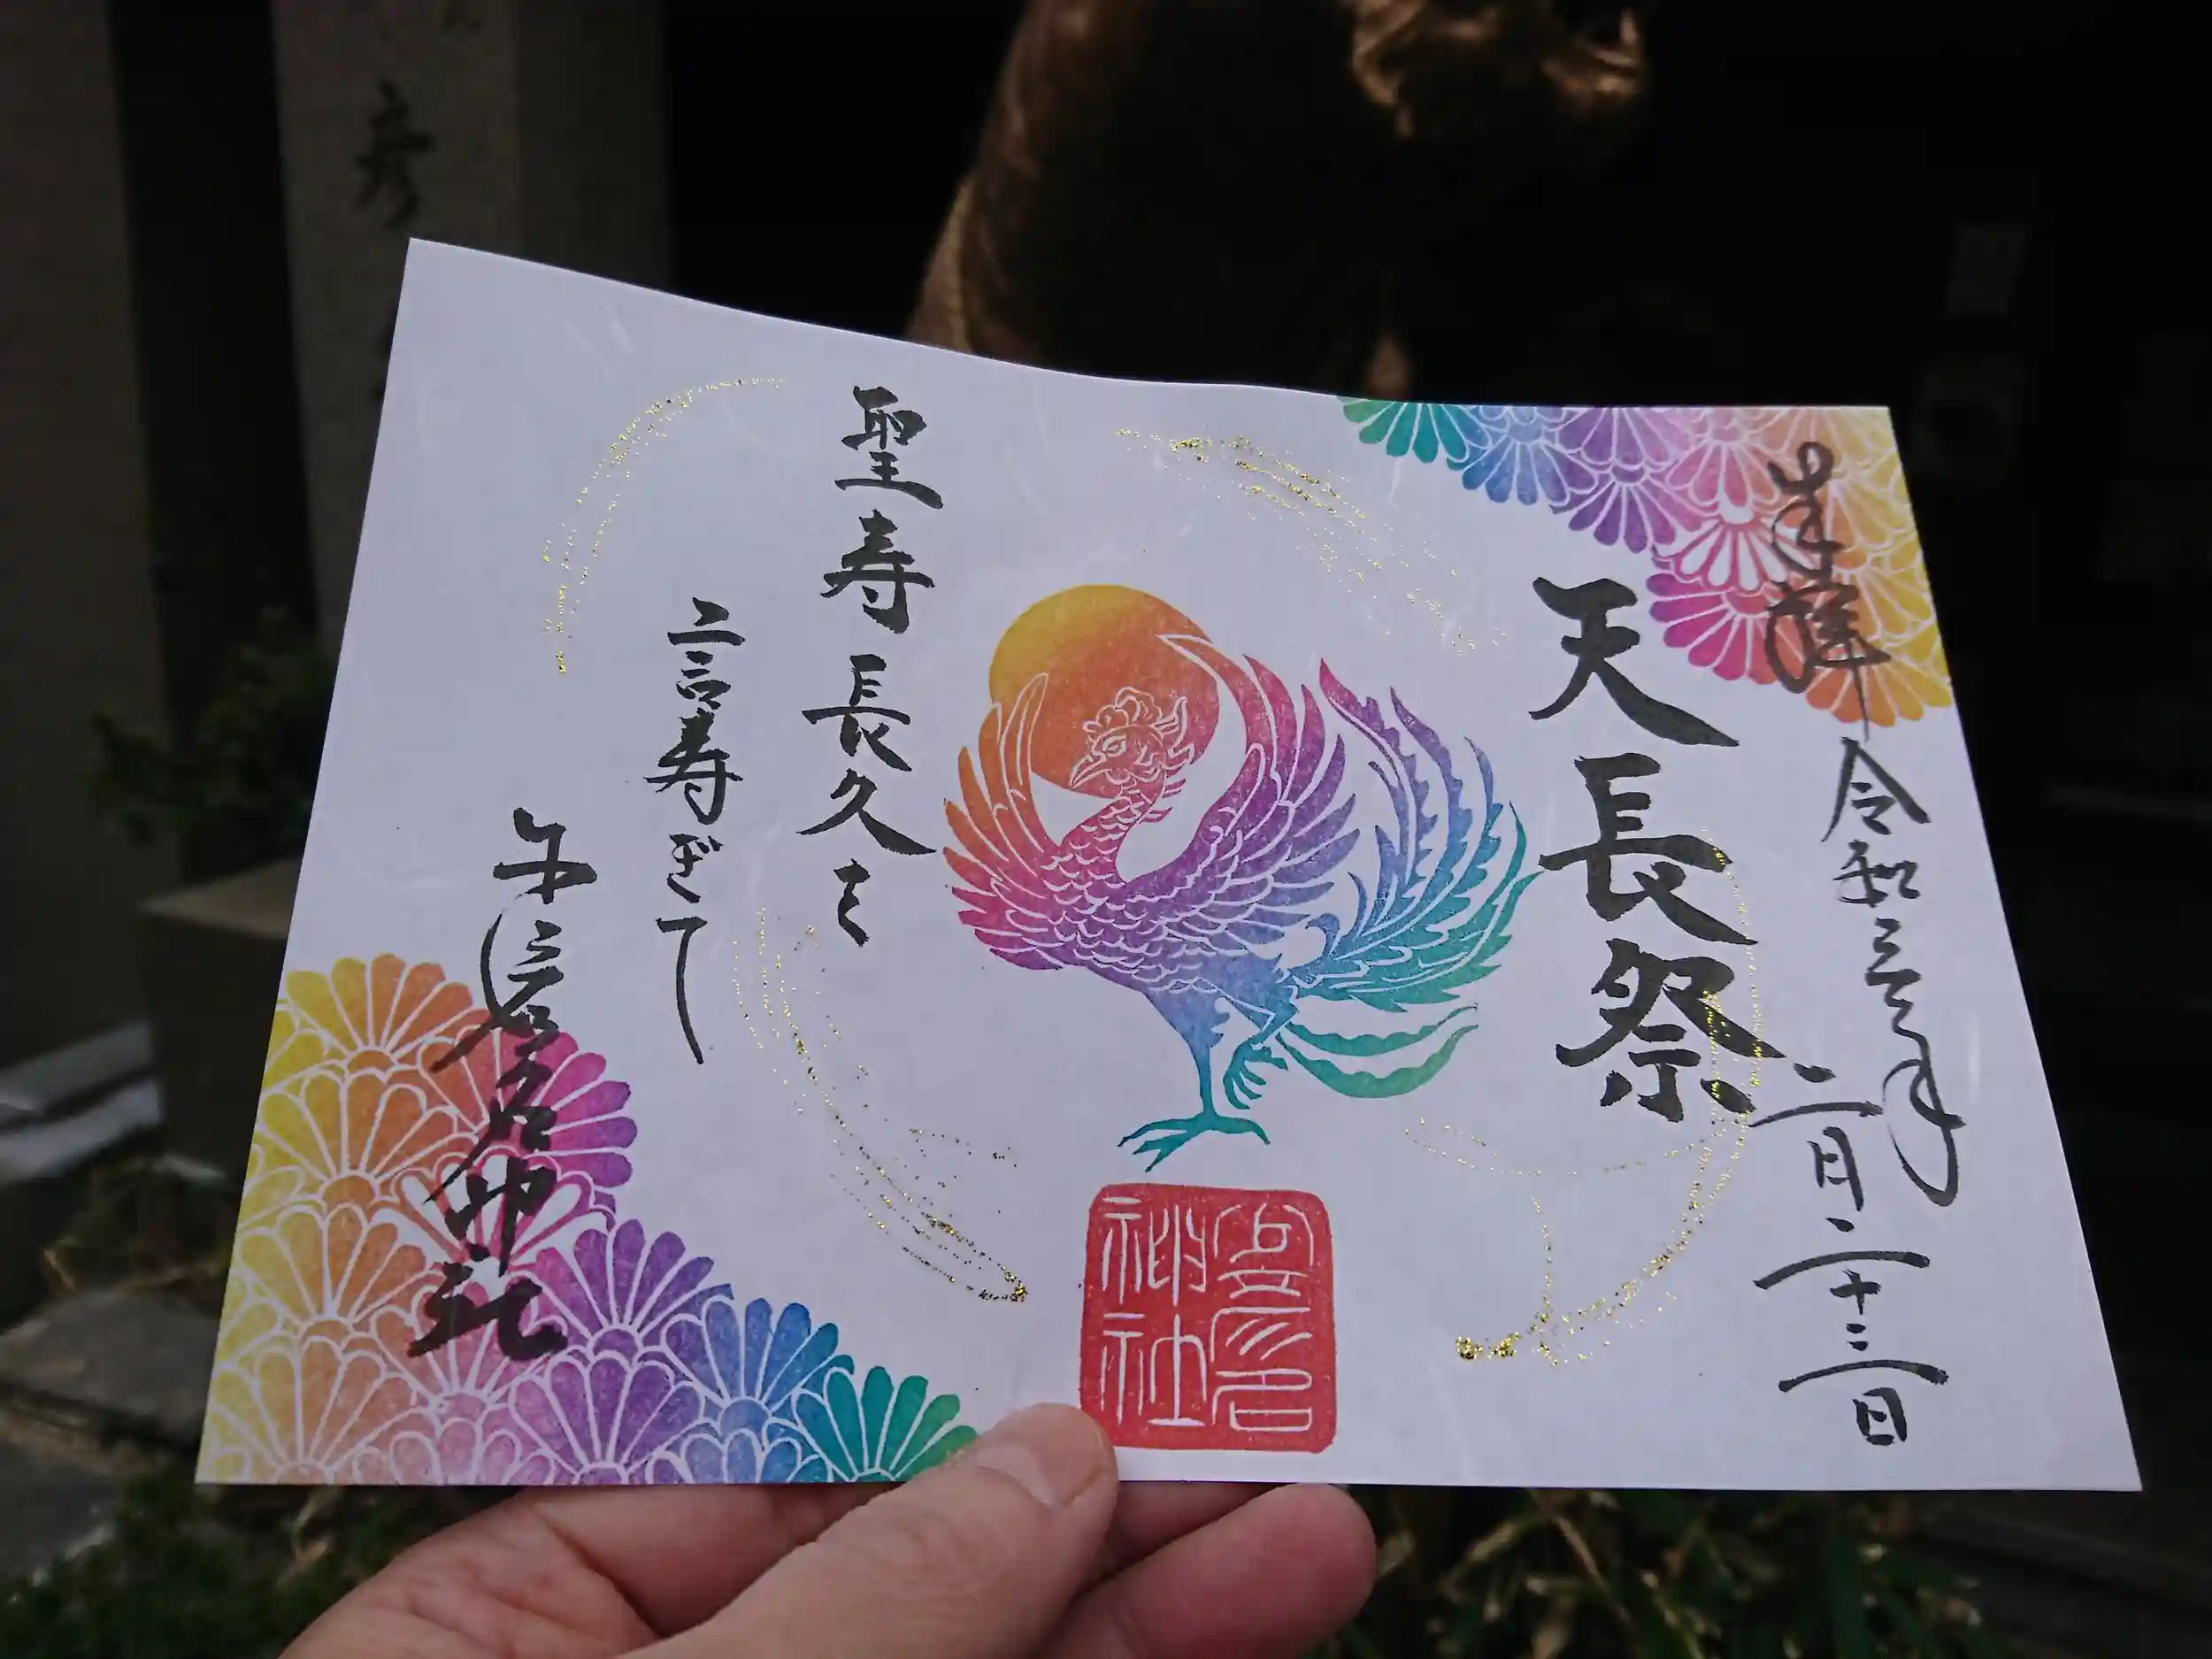 奉拝
令和三年
二月二十三日
天長祭
聖寿長久を
言寿ぎて
神社
神社
彦